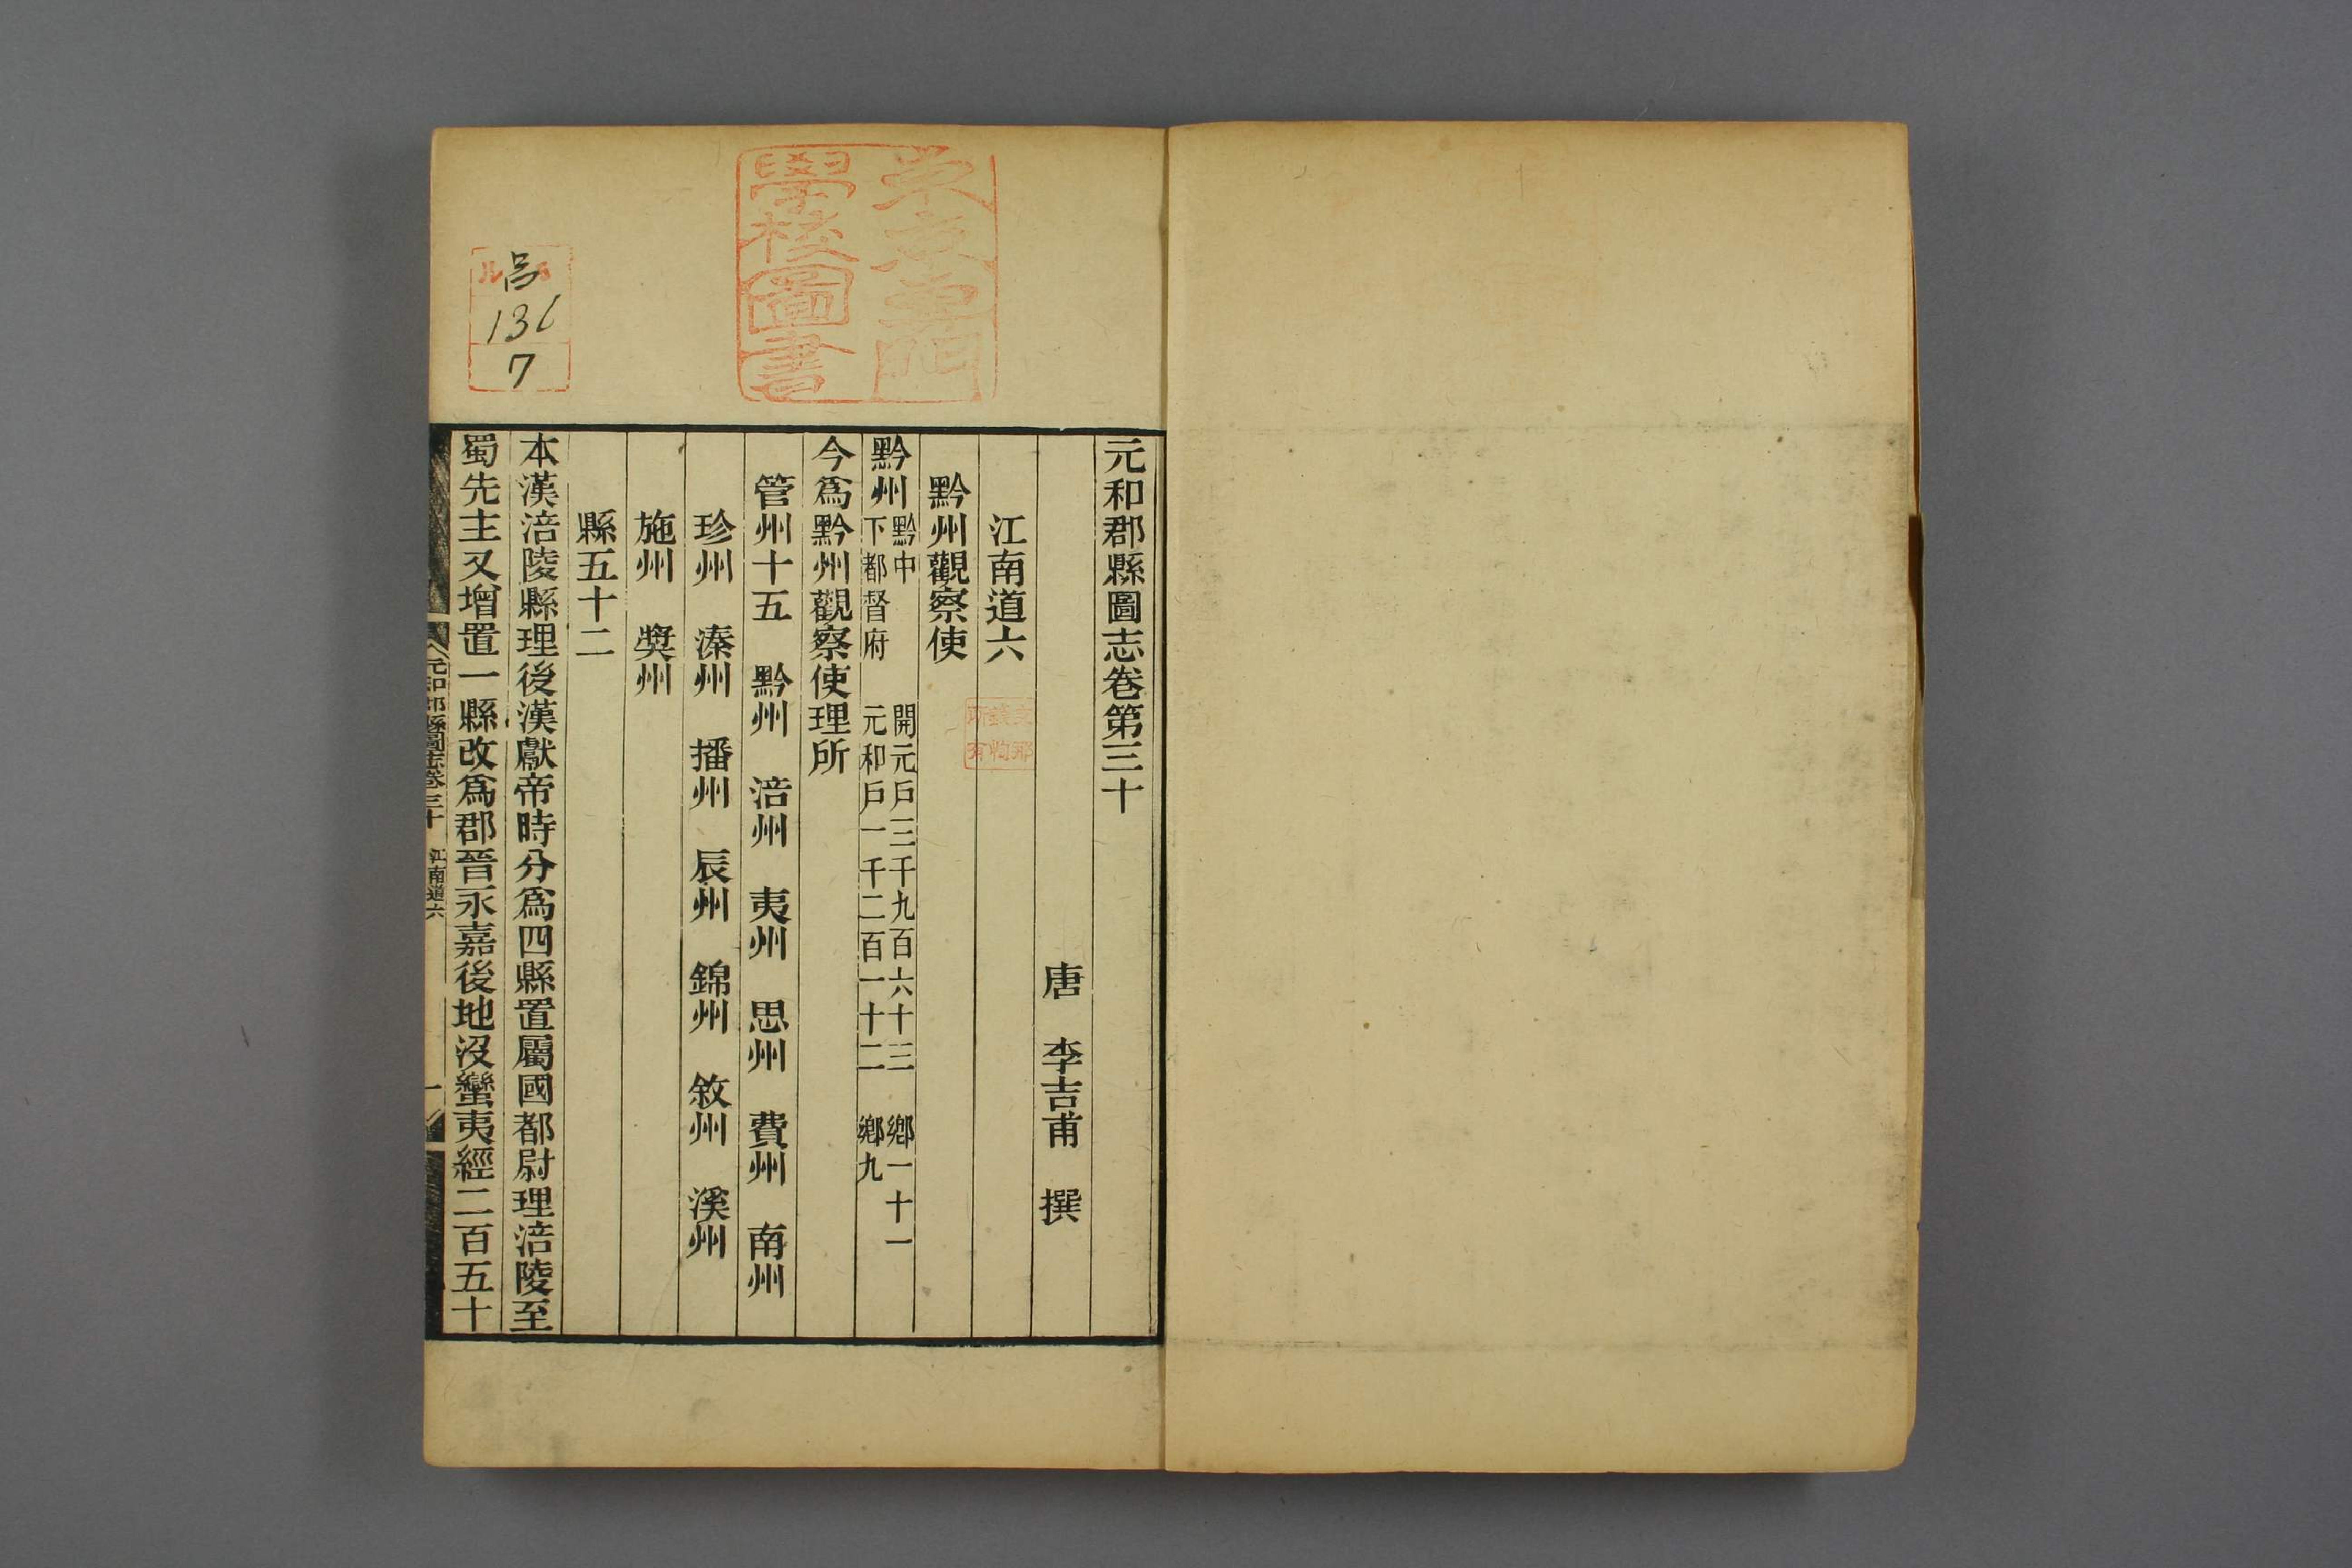 元和郡縣圖志卷第三十
唐　李吉甫　撰
江南道六
黔州觀察使
黔州黔中　　　開元戶三千九百六十三　鄉一十一
下都督府　元和戶一千二百一十二　鄉九
今爲黔州觀察使理所
管州十五　黔州　涪州　夷州　思州　費州　南州
珍州　溱州　播州　辰州　錦州　敘州　溪州
施州　獎州
縣五十二
本漢涪陵縣理後漢獻帝時分爲四縣置屬國都尉理涪陵至
蜀先主又增置一縣改爲郡晉永嘉後地沒蠻夷經二百五十
元和郡縣圖志卷三十　江南道六　一
學校圖書
136
7